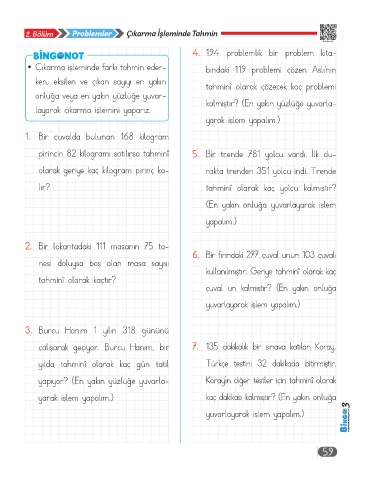 2. Bölüm Problemler Çıkarma İşleminde Tahmin
BİNGONOT
• Çıkarma işleminde farkı tahmin eder-
ken, eksilen ve çıkan sayıyı en yakın
onluğa veya en yakın yüzlüğe yuvar-
layarak çıkarma işlemini yaparız.
1. Bir çuvalda bulunan 168 kilogram
pirincin 82 kilogramı satılırsa tahminî
olarak geriye kaç kilogram pirinç ka-
lır?
2. Bir lokantadaki 111 masanın 75 ta-
nesi doluysa boş olan masa sayısı
tahminî olarak kaçtır?
3. Burcu Hanım 1 yılın 318 gününü
çalışarak geçiyor. Burcu Hanım, bir
yılda tahminî olarak kaç gün tatil
yapıyor? (En yakın yüzlüğe yuvarla-
yarak işlem yapalım.)
4. 194 problemlik bir problem kita-
bındaki 119 problemi çözen Aslı'nın
tahminî olarak çözecek kaç problemi
kalmıştır? (En yakın yüzlüğe yuvarla-
yarak işlem yapalım.)
5. Bir trende 781 yolcu vardı. İlk du-
rakta trenden 351 yolcu indi. Trende
tahminî olarak kaç yolcu kalmıştır?
(En yakın onluğa yuvarlayarak işlem
yapalım.)
6. Bir fırındaki 277 çuval unun 103 çuvalı
kullanılmıştır. Geriye tahminî olarak kaç
çuval un kalmıştır? (En yakın onluğa
yuvarlayarak işlem yapalım.)
7. 135 dakikalık bir sınava katılan Koray,
Türkçe testini 32 dakikada bitirmiştir.
Koray'ın diğer testler için tahminî olarak
kaç dakikası kalmıştır? (En yakın onluğa
yuvarlayarak işlem yapalım.)
BİNGO 3
59